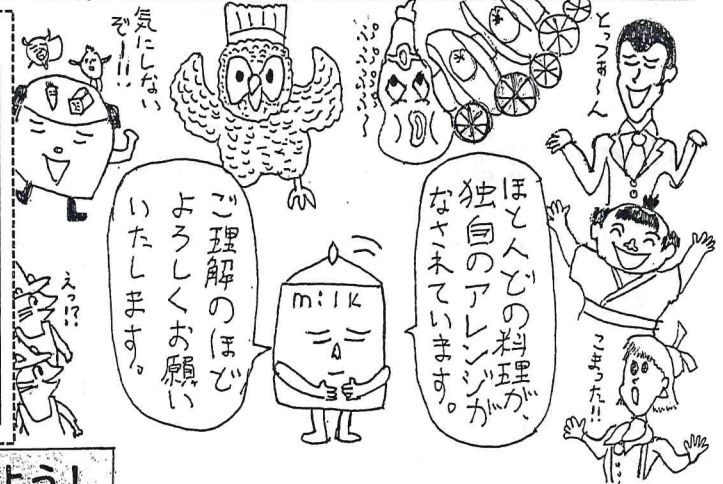 とってぉ〜ん
ほとんどの料理が、
独自のアレンジが
なされています。
こまった!!
milk
ご理解のほど
よろしくお願い
いたします。
気にしない
ぞー!!
えっ!?
よう!